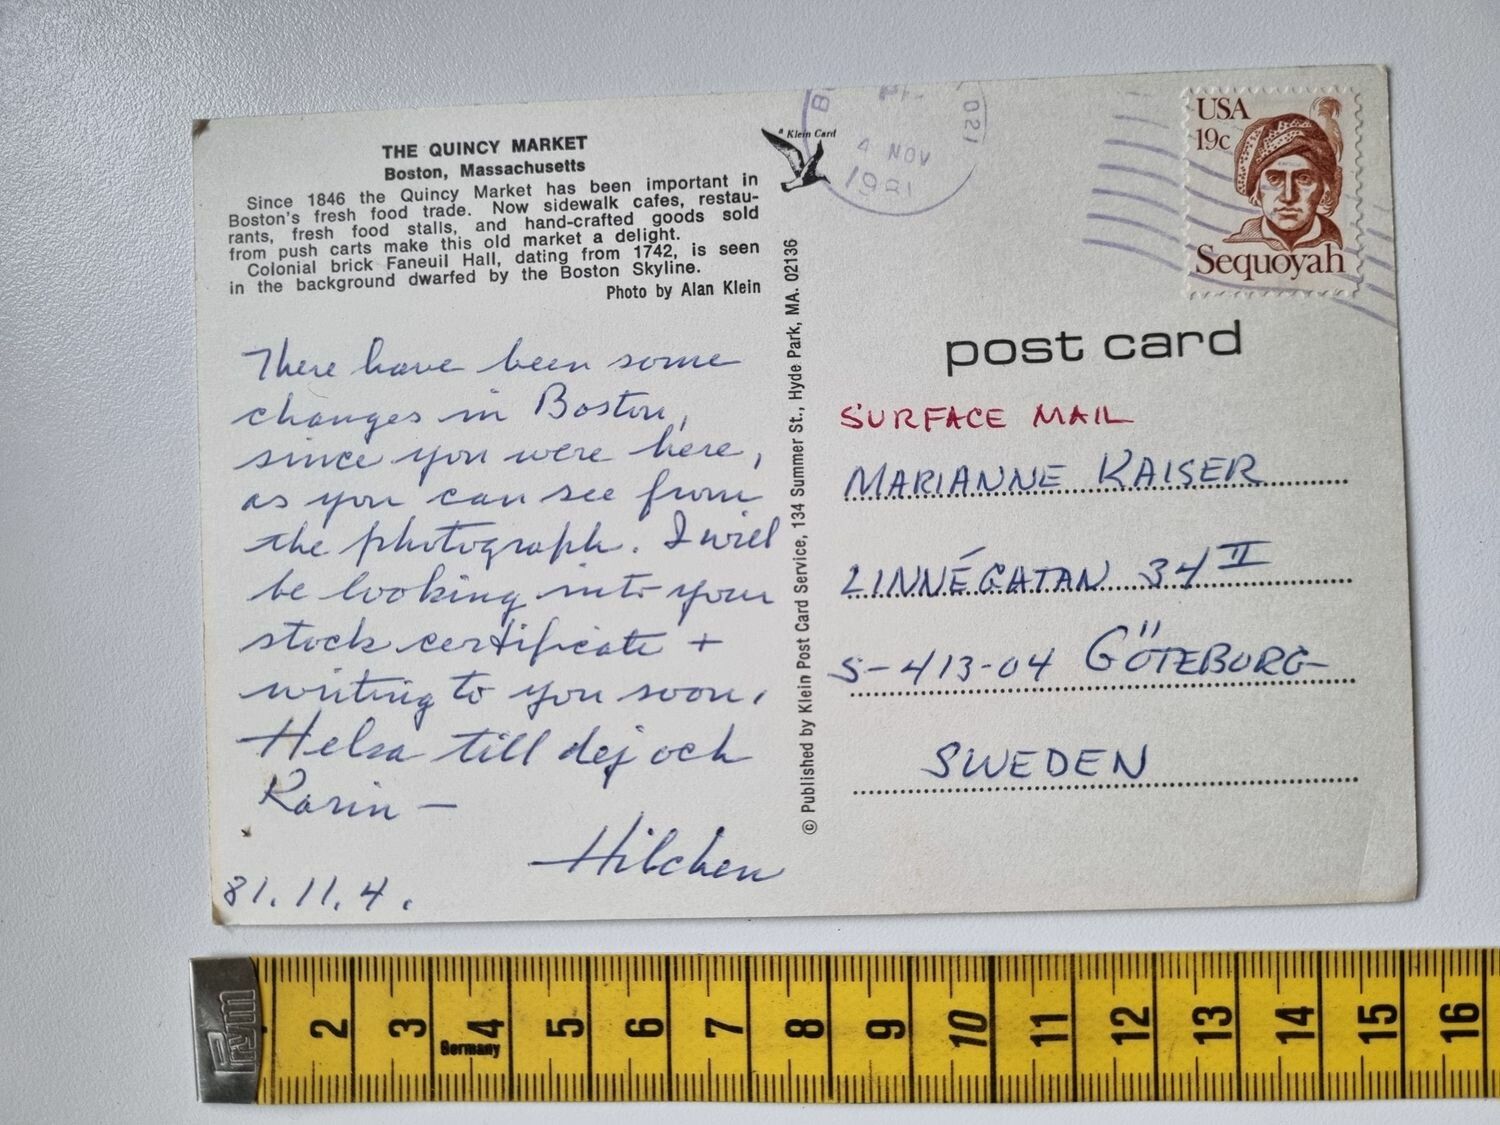 THE QUINCY MARKET
Boston, Massachusetts
Since 1846 the Quincy Market has been important in
Boston's fresh food trade. Now sidewalk cafes, restau-
rants, fresh food stalls, and hand-crafted goods sold
from push carts make this old market a delight.
Colonial brick Faneuil Hall, dating from 1742, is seen
in the background dwarfed by the Boston Skyline.
Photo by Alan Klein
There have been some
changes in Boston,
since you were here,
as you can see from
the photograph. I will
be looking into your
stock certificate +
writing to you soon.
Helsa till dej och
Karin –
81.11.4.
© Published by Klein Post Card Service, 134 Summer St., Hyde Park, MA. 02136
a Klein Card
4 NOV
1981
021
USA
19c
Sequoyah
post card
SURFACE MAIL
MARIANNE KAISER
LINNÉGATAN 34 II
S-413-04 GÖTEBORG
SWEDEN
Prym
2 3 4 5 6 7 8 9 10 11 12 13 14 15 16
Germany